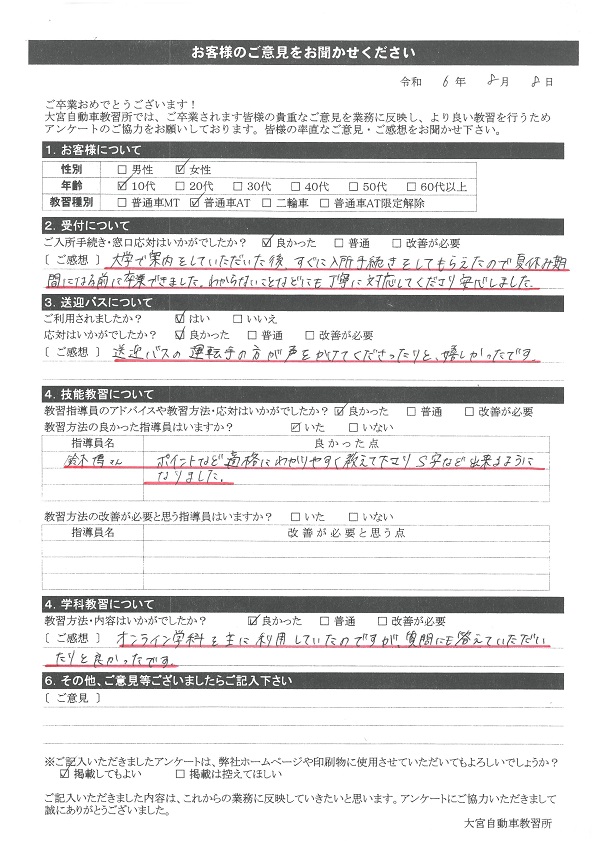 お客様のご意見をお聞かせください
令和 6 年 8 月 8 日
ご卒業おめでとうございます！
大宮自動車教習所では、ご卒業されます皆様の貴重なご意見を業務に反映し、より良い教習を行うため
アンケートのご協力をお願いしております。皆様の率直なご意見・ご感想をお聞かせ下さい。
1. お客様について
性別 □ 男性 ☑ 女性
年齢 ☑ 10代 □ 20代 □ 30代 □ 40代 □ 50代 □ 60代以上
教習種別 □ 普通車MT ☑ 普通車AT □ 二輪車 □ 普通車AT限定解除
2. 受付について
ご入所手続き・窓口応対はいかがでしたか？ ☑ 良かった □ 普通 □ 改善が必要
〔 ご感想 〕 大学で案内をしていただいた後、すぐに入所手続きをしてもらえたので夏休み期
間になる前に卒業できました。わからないことなどにも丁寧に対応してくださり安心しました。
3. 送迎バスについて
ご利用されましたか？ ☑ はい □ いいえ
応対はいかがでしたか？ ☑ 良かった □ 普通 □ 改善が必要
〔 ご感想 〕 送迎バスの運転手の方が声をかけてくださったりと、嬉しかったです。
4. 技能教習について
教習指導員のアドバイスや教習方法・応対はいかがでしたか？ ☑ 良かった □ 普通 □ 改善が必要
教習方法の良かった指導員はいますか？ ☑ いた □ いない
指導員名 良かった点
鈴木博さん ポイントなど適格にわかりやすく教えて下さりS字など出来るように
なりました。
教習方法の改善が必要と思う指導員はいますか？ □ いた □ いない
指導員名 改善が必要と思う点
4. 学科教習について
教習方法・内容はいかがでしたか？ ☑ 良かった □ 普通 □ 改善が必要
〔 ご感想 〕 オンライン学科を主に利用していたのですが、質問にも答えていただい
たりと良かったです。
6. その他、ご意見等ございましたらご記入下さい
〔 ご意見 〕
※ご記入いただきましたアンケートは、弊社ホームページや印刷物に使用させていただいてもよろしいでしょうか？
☑ 掲載してもよい □ 掲載は控えてほしい
ご記入いただきました内容は、これからの業務に反映していきたいと思います。アンケートにご協力いただきまして
誠にありがとうございました。
大宮自動車教習所